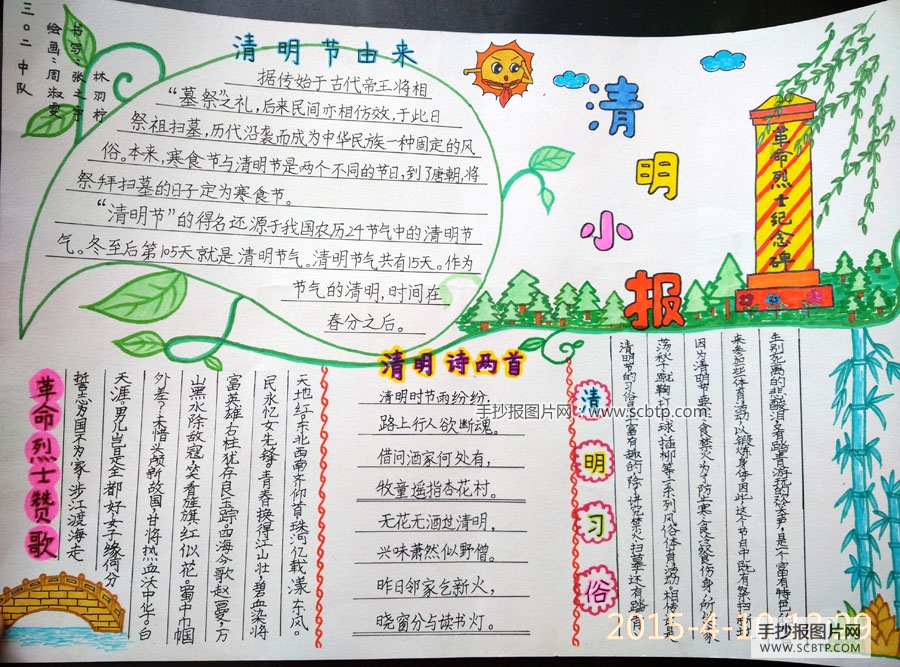 三〇二中队
绘画：周淑雯
书写：张之宁
林羽柠
清明节由来
据传始于古代帝王将相
“墓祭”之礼，后来民间亦相仿效，于此日
祭祖扫墓，历代沿袭而成为中华民族一种固定的风
俗。本来，寒食节与清明节是两个不同的节日，到了唐朝，将
祭拜扫墓的日子定为寒食节。
“清明节”的得名还源于我国农历24节气中的清明节
气。冬至后第105天就是清明节气。清明节气共有15天。作为
节气的清明，时间在
春分之后。
清明小报
革命烈士纪念碑
革命烈士赞歌
天地红。东北西南齐仰首，珠河忆载漾东风。
民永忆女先锋。青春换得江山壮，碧血染将
富英雄，石柱犹存良玉踪。四海今歌赵一曼，万
山黑水除敌寇，笑看旌旗红似花。蜀中巾帼
外差？未惜头颅新故国，甘将热血沃中华。白
天涯。男儿岂是全都好，女子缘何分
誓志为国不为家，涉江渡海走
清明诗两首
清明时节雨纷纷，
路上行人欲断魂。
借问酒家何处有，
牧童遥指杏花村。
无花无酒过清明，
兴味萧然似野僧。
昨日邻家乞新火，
晓窗分与读书灯。
清明习俗
清明节的习俗是丰富有趣的，除了讲究禁火、扫墓，还有踏青、
荡秋千、蹴鞠、打马球、插柳等一系列风俗体育活动。相传这是
因为清明节要寒食禁火，为了防止寒食冷餐伤身，所以大家
来参加些体育活动，以锻炼身体。因此，这个节日中既有祭扫新坟
生别死离的悲酸泪，又有踏青游玩的欢笑声，是一个富有特色的
手抄报图片网 www.scbtp.com
2015-4-10 19:29
手抄报图片网
WWW.SCBTP.COM